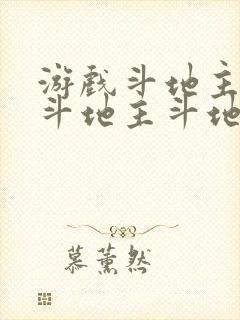 游戏斗地主
斗地主斗地
慕薰然